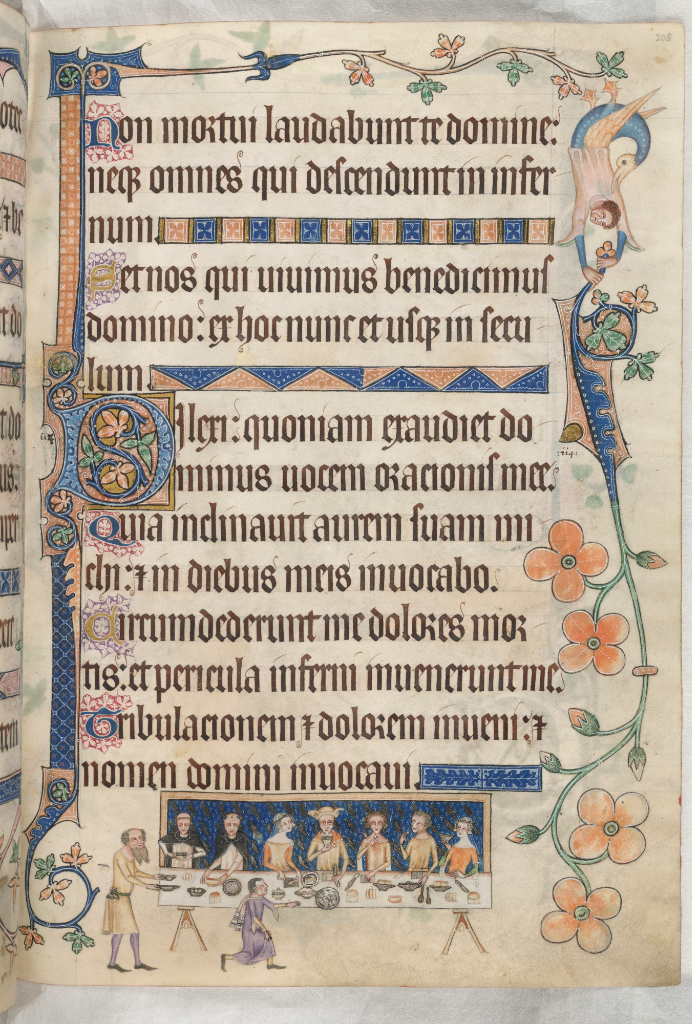 208
Non mortui laudabunt te domine:
neqꝫ omnes qui descendunt in infer
num.
Set nos qui uiuimus benedicimus
domino: ex hoc nunc et usqꝫ in secu
lum.
Dilexi: quoniam exaudiet do
minus uocem oracionis mee.
Quia inclinauit aurem suam mi
chi: ⁊ in diebus meis inuocabo.
Circumdederunt me dolores mor
tis: et pericula inferni inuenerunt me.
Tribulacionem ⁊ dolorem inueni: ⁊
nomen domini inuocaui.